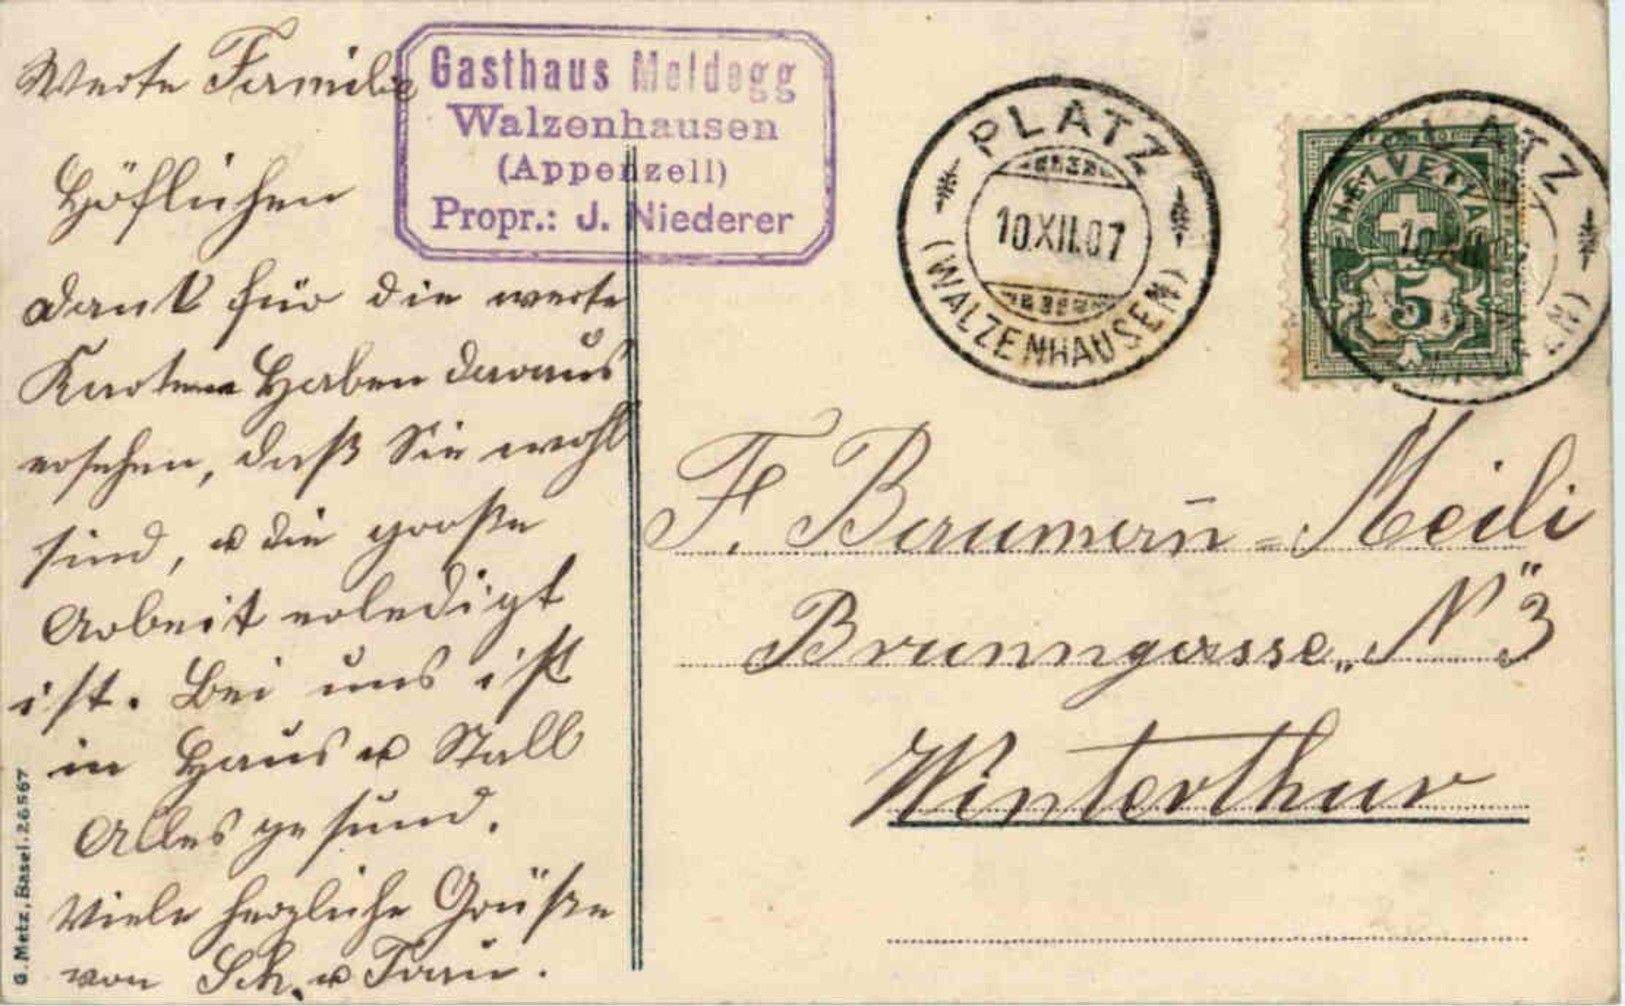 Werte Familie
Höflichen
Dank für die werte
Karten Haben daraus
ersehen, daß Sie wohl
sind, u die große
Arbeit erledigt
ist. Bei uns ist
in Haus u Stall
Alles gesund.
Viele herzliche Grüße
von Sch. u Frau.
Gasthaus Meldegg
Walzenhausen
(Appenzell)
Propr.: J. Niederer
PLATZ
10.XII.07
(WALZENHAUSEN)
PLATZ
HELVETIA
5
F. Baumann=Meili
Brunngasse„ N" 3
Winterthur
G. Metz, Basel. 26567